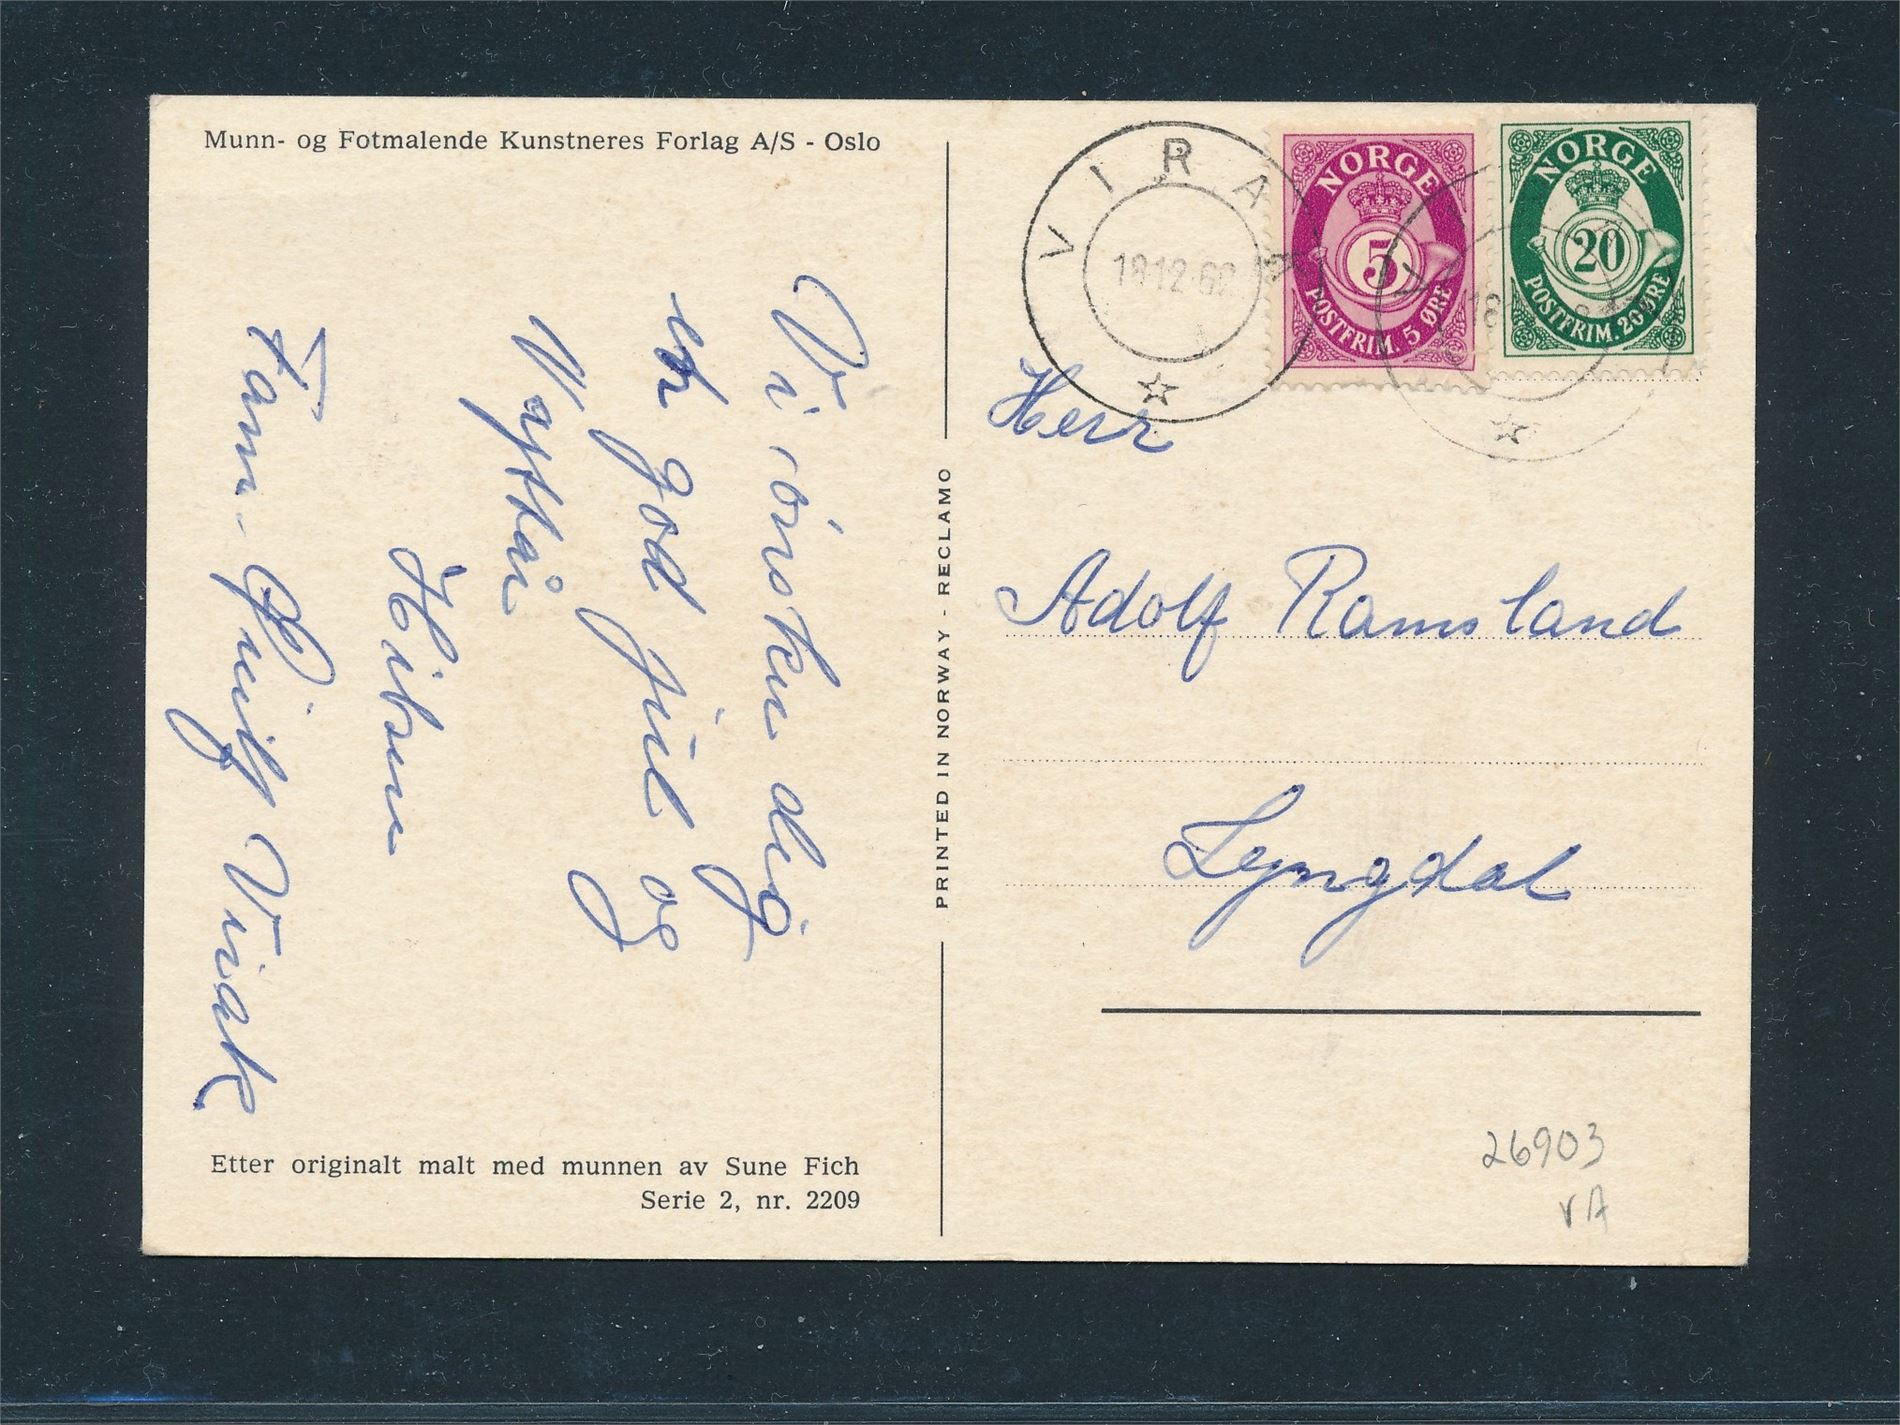 Munn- og Fotmalende Kunstneres Forlag A/S - Oslo
Vi önsker deg
en god jul og
Nyttår
Hilsen
Fam. Virak
Etter originalt malt med munnen av Sune Fich
Serie 2, nr. 2209
PRINTED IN NORWAY - RECLAMO
VIRAK
18.12.6
NORGE
5
POSTFRIM. 5 ØRE
NORGE
20
POSTFRIM. 20 ØRE
18
Herr
Adolf Ramsland
Lyngdal
26903
VA